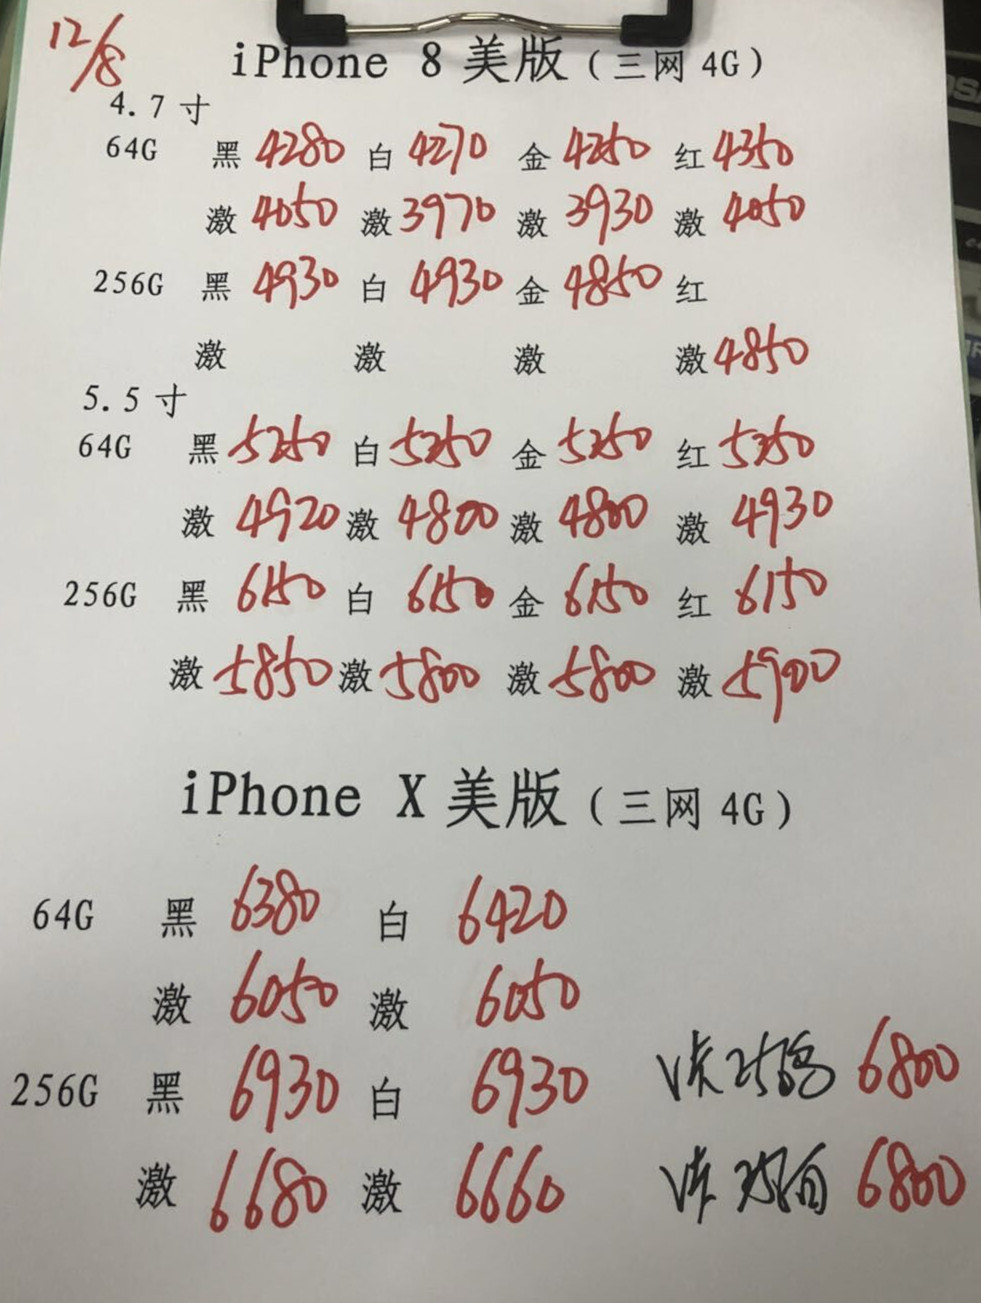 12/8
iPhone 8 美版(三网 4G)
4.7 寸
64G 黑 4280 白 4270 金 4250 红 4350
激 4050 激 3970 激 3930 激 4050
256G 黑 4930 白 4930 金 4850 红
激 激 激 激 4850
5.5 寸
64G 黑 5250 白 5250 金 5250 红 5350
激 4920 激 4800 激 4800 激 4930
256G 黑 6150 白 6150 金 6150 红 6150
激 5850 激 5800 激 5800 激 5900
iPhone X 美版(三网 4G)
64G 黑 6380 白 6420
激 6050 激 6050
256G 黑 6930 白 6930 6800
激 6680 激 6660 6800